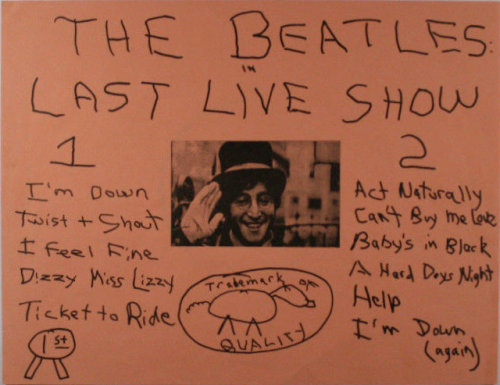 THE BEATLES:
IN
LAST LIVE SHOW
1
I'm Down
Twist + Shout
I Feel Fine
Dizzy Miss Lizzy
Ticket to Ride
1st
Trademark of
QUALITY
2
Act Naturally
Can't Buy Me Love
Baby's in Black
A Hard Days Night
Help
I'm Down
(again)